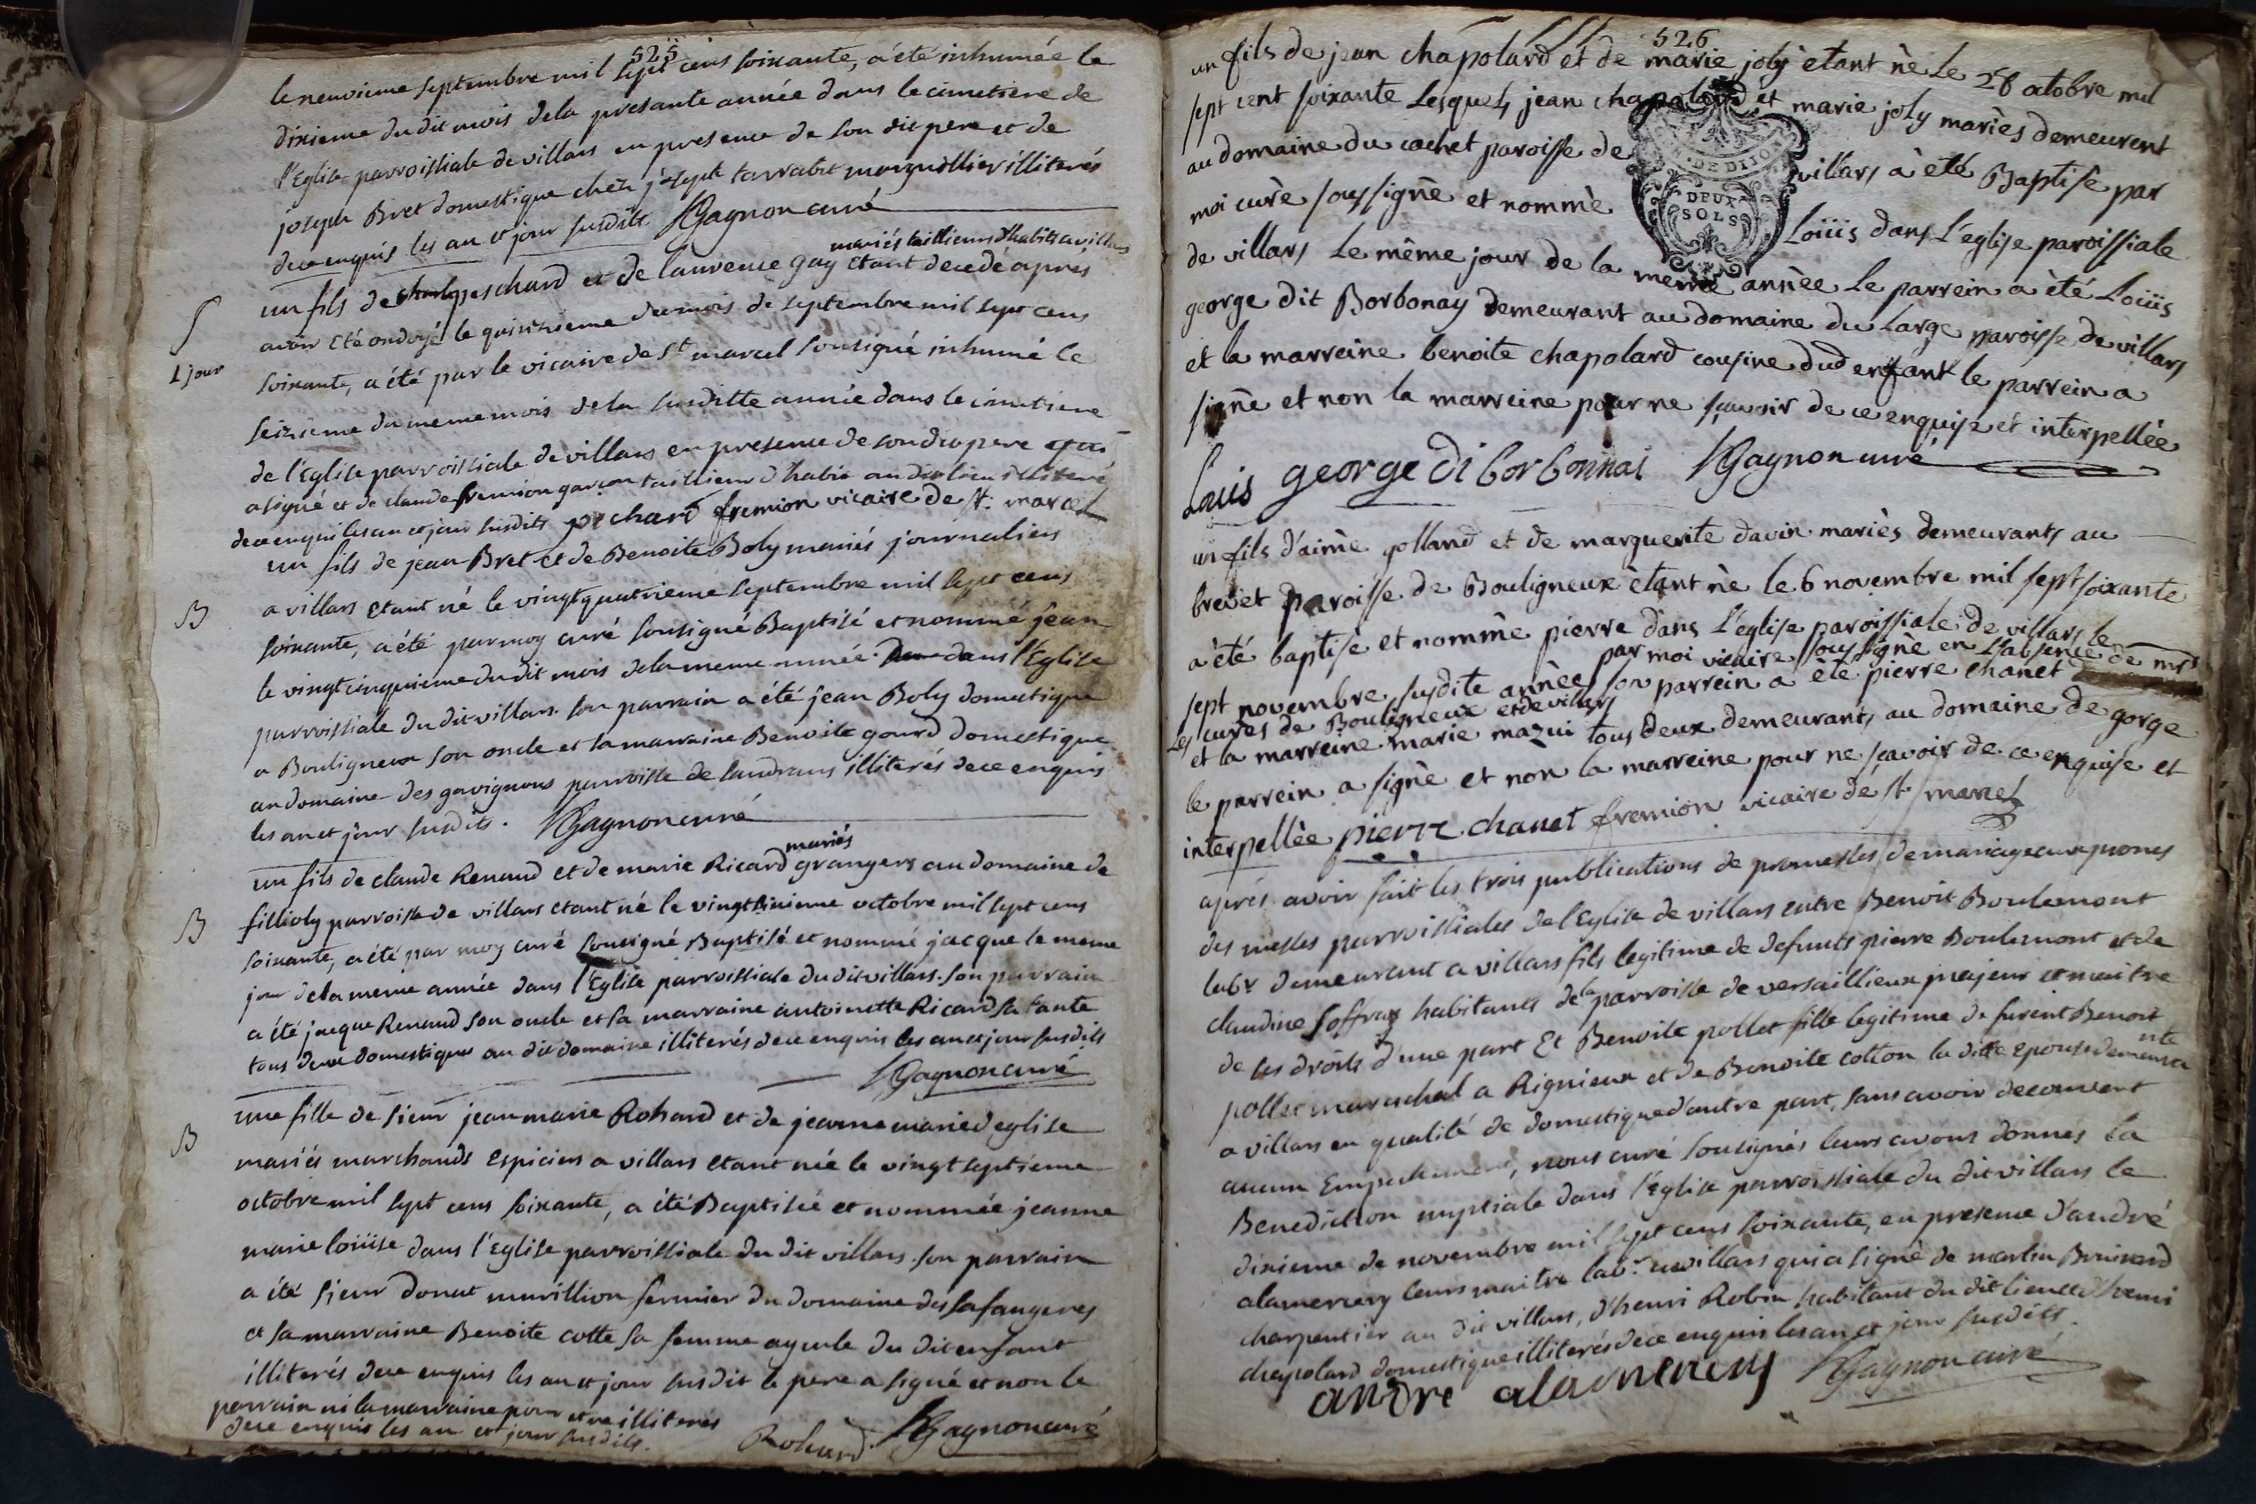 525
le neuvieme septembre mil sept cens soixante, a été inhumée le
dixieme du dit mois dela presante année dans le cimetiere de
l'Eglise parroissiale de villars en presence de son dit pere et de
joseph Bret domestique chez joseph tarrabet marguillier illiterés
de ce enquis les an et jour susdits. Gagnon curé
mariés taillieurs d'habits a villars
un fils de peschard et de laurence gay etant decedé aprés
S
avoir été ondoyé le quinzieme du mois de septembre mil sept cens
1 jour
soixante, a été par le vicaire de St marcel sousigné inhumé le
seizieme du meme mois dela susditte année dans le cimetiere
de l'Eglise parroissiale de villars en presence de son dit pere qui
a signé et de claude fremion garçon taillieur d'habit au dit lieu illiteré
de ce enqui les an et jour susdits pechard fremion vicaire de St. marcel
un fils de jean Bret et de Benoite Boly mariés journaliers
B
a villars etant né le vingtquatrieme septembre mil sept cens
soixante, a été par moy curé sousigné Baptisé et nommé jean
le vingt cinquieme du dit mois dela meme année dans l'Eglise
parroissiale du dit villars. son parrain a été jean Boly domestique
a Bouligneux son oncle et sa marraine Benoite gourd domestique
au domaine des gavignons parroisse de sandrans illiterés de ce enquis
les an et jour susdits. Gagnon curé
mariés
un fils de claude Renaud et de marie Ricard grangers au domaine de
B
fillioly parroisse de villars etant né le vingtsixieme octobre mil sept cens
soixante, a été par moy curé sousigné Baptisé et nommé jacque le meme
jour dela meme année dans l'Eglise parroissiale du dit villars. son parrain
a été jacque Renaud son oncle et sa marraine antoinette Ricard sa tante
tous deux domestiques au dit domaine illiterés de ce enquis les an et jour susdits
Gagnon curé
une fille de sieur jean marie Rohard et de jeanne marie deglise
B
mariés marchands Espiciers a villars etant née le vingt septieme
octobre mil sept cens soixante, a été Baptisée et nommée jeanne
marie loüise dans l'Eglise parroissiale du dit villars. son parrain
a été sieur donat murillion fermier du domaine des safangeres
et sa marraine Benoite cotte sa femme ayeule du dit enfant
illiterés de ce enquis les an et jour susdit le pere a signé et non le
parrain ni la marraine pour etre illiterés
de ce enquis les an et jour susdits. Rohard. Gagnon curé
526
un fils de jean chapolard et de marie joly étant né le 28 octobre mil
sept cent soixante Lesquels jean chapolard et marie joly mariés demeurent
au domaine du cachet paroisse de villars à été Baptisé par
DE DIJON
DEUX
SOLS
moi curé soussigné et nommé Loüis dans L'eglise paroissiale
de villars Le même jour de la meme année Le parrein a été Loüis
george dit Borbonay demeurant au domaine du Large paroisse de villars
et la marreine benoite chapolard cousine dud enfant le parrein a
signé et non la marreine pour ne sçavoir de ce enquise et interpellée
Louis george di borbonnai Gagnon curé
un fils d'aimé golland et de marguerite davin mariés demeurants au
brevet paroisse de Bouligneux étant né le 6 novembre mil sept soixante
a été baptisé et nommé pierre dans L'eglise paroissiale de villars le
par moi vicaire soussigné en L'absence de mrs
sept novembre susdite année son parrein a été pierre chanet
Les curés de Bouligneux et de villars
et la marreine marie mazui tous deux demeurants au domaine de gorge
le parrein a signé et non la marreine pour ne sçavoir de ce enquise et
interpellée pierre chanet fremion vicaire de St marcel
aprés avoir fait les trois publications de promesses de mariage aux prones
des messes parroissiales de l'Eglise de villars entre Benoit Boulemont
labr demeurant a villars fils legitime de defunts pierre Boulemont et de
claudine soffray habitants de la parroisse de versaillieux majeur et maitre
de ses droits d'une part Et Benoite pollet fille legitime de furent Benoit
pollet marechal a Rignieux et de Benoite cotton la ditte Epouse demeurante
a villars en qualité de domestique d'autre part, sans avoir decouvert
aucun Empechement, nous curé sousignés leurs avons donnés la
Benediction nuptiale dans l'Eglise parroissiale du dit villars le
dixieme de novembre mil sept cens soixante, en presence d'andré
alamercery leurs maitre labr. a villars qui a signé de martin Brivend
charpentier au dit villars, d'henri Robin habitant du dit lieu et d'henri
chapolard domestique illiterés de ce enquis les an et jour susdits.
andre alamercery Gagnon curé